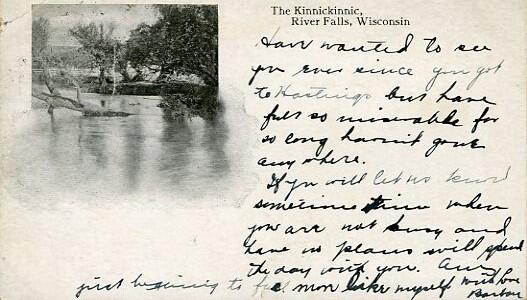 The Kinnickinnic,
River Falls, Wisconsin
Have wanted to see
you ever since you got
to Hastings but have
felt so miserable for
so long havn't gone
any where.
If you will let us know
sometime when
you are not busy and
have no plans will spend
the day with you. Am
just beginning to feel more like myself with love
Barbara